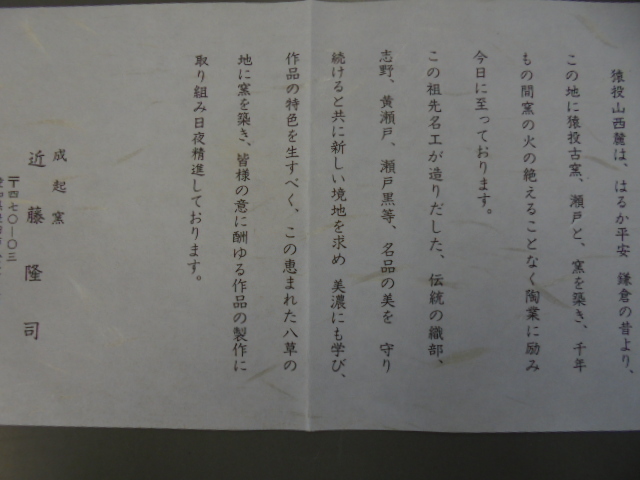 猿投山西麓は、はるか平安 鎌倉の昔より、
この地に猿投古窯、瀬戸と、窯を築き、千年
もの間窯の火の絶えることなく陶業に励み
今日に至っております。
この祖先名工が造りだした、伝統の織部、
志野、黄瀬戸、瀬戸黒等、名品の美を 守り
続けると共に新しい境地を求め 美濃にも学び、
作品の特色を生すべく、この恵まれた八草の
地に窯を築き、皆様の意に酬ゆる作品の製作に
取り組み日夜精進しております。
成起窯
近藤隆司
〒四七〇―〇三